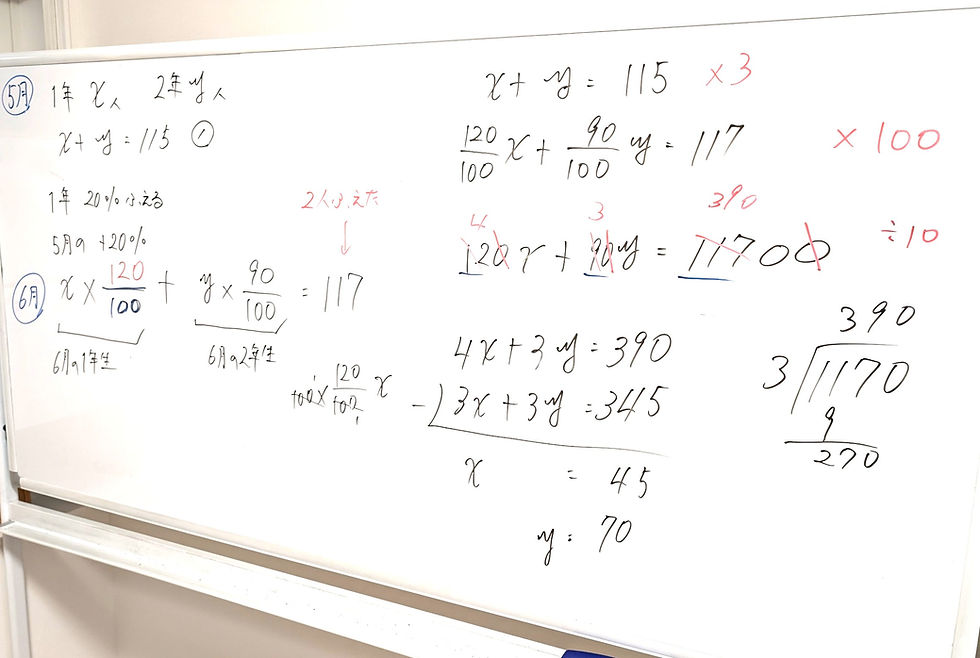 5月 1年 x人 2年 y人
x + y = 115 ①
1年 20%ふえる
5月の +20%
2人ふえた
↓
6月 x × 120/100 + y × 90/100 = 117
6月の1年生 6月の2年生
100 × 120/100 x
x + y = 115 ×3
120/100 x + 90/100 y = 117 ×100
4 3 390
120x + 90y = 11700 ÷10
4x + 3y = 390
-) 3x + 3y = 345
x = 45
y = 70
390
3)1170
9
270